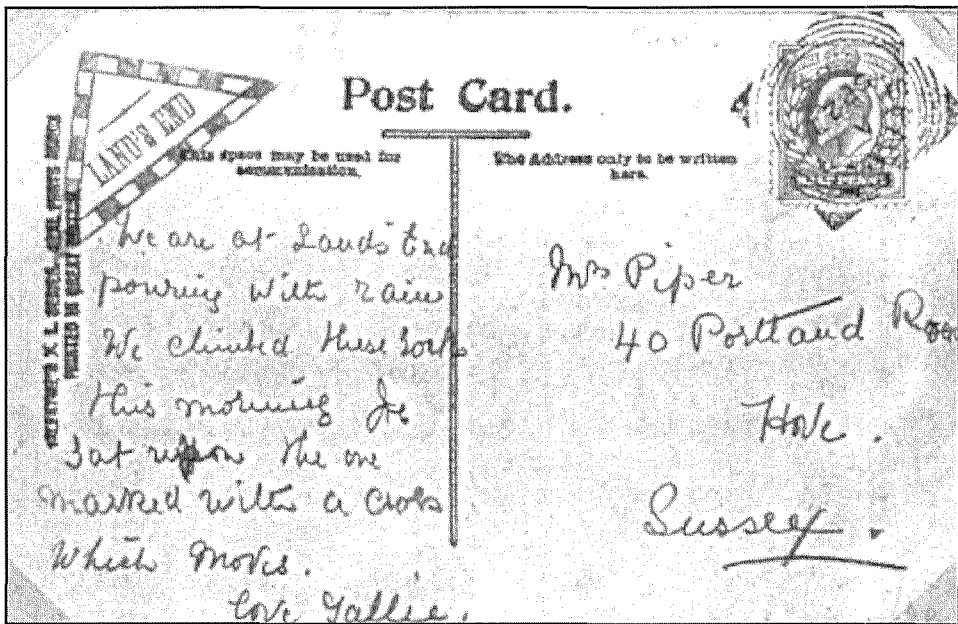 Post Card.
LAND'S END
This space may be used for
communication.
The Address only to be written
here.
PRINTED IN GREAT BRITAIN
We are at Lands End
pouring with rain
We climbed these rocks
this morning Joe
sat upon the one
marked with a cross
which moves.
Love
Mrs Piper
40 Portland Road
Hove.
Sussex.